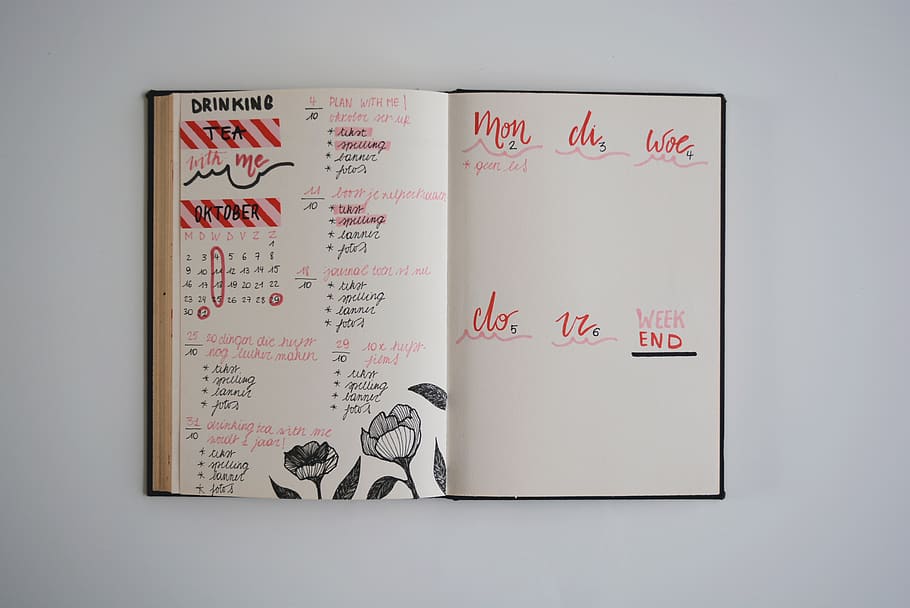 DRINKING
TEA
with me
OKTOBER
M D W D V Z Z
1
2 3 4 5 6 7 8
9 10 11 12 13 14 15
16 17 18 19 20 21 22
23 24 25 26 27 28 29
30 31
4/10 PLAN WITH ME |
oktober set up
* tekst
* spelling
* banner
* foto's
11/10 boost je zelfvertrouwen
* tekst
* spelling
* banner
* foto's
18/10 journal toen vs nu
* tekst
* spelling
* banner
* foto's
25/10 20 dingen die herfst
nog leuker maken
* tekst
* spelling
* banner
* foto's
29/10 10x herfst-
films
* tekst
* spelling
* banner
* foto's
31/10 drinking tea with me
wordt 1 jaar!
* tekst
* spelling
* banner
* foto's
Mon 2 di 3 woe 4
* geen les
do 5 vr 6 WEEK
END